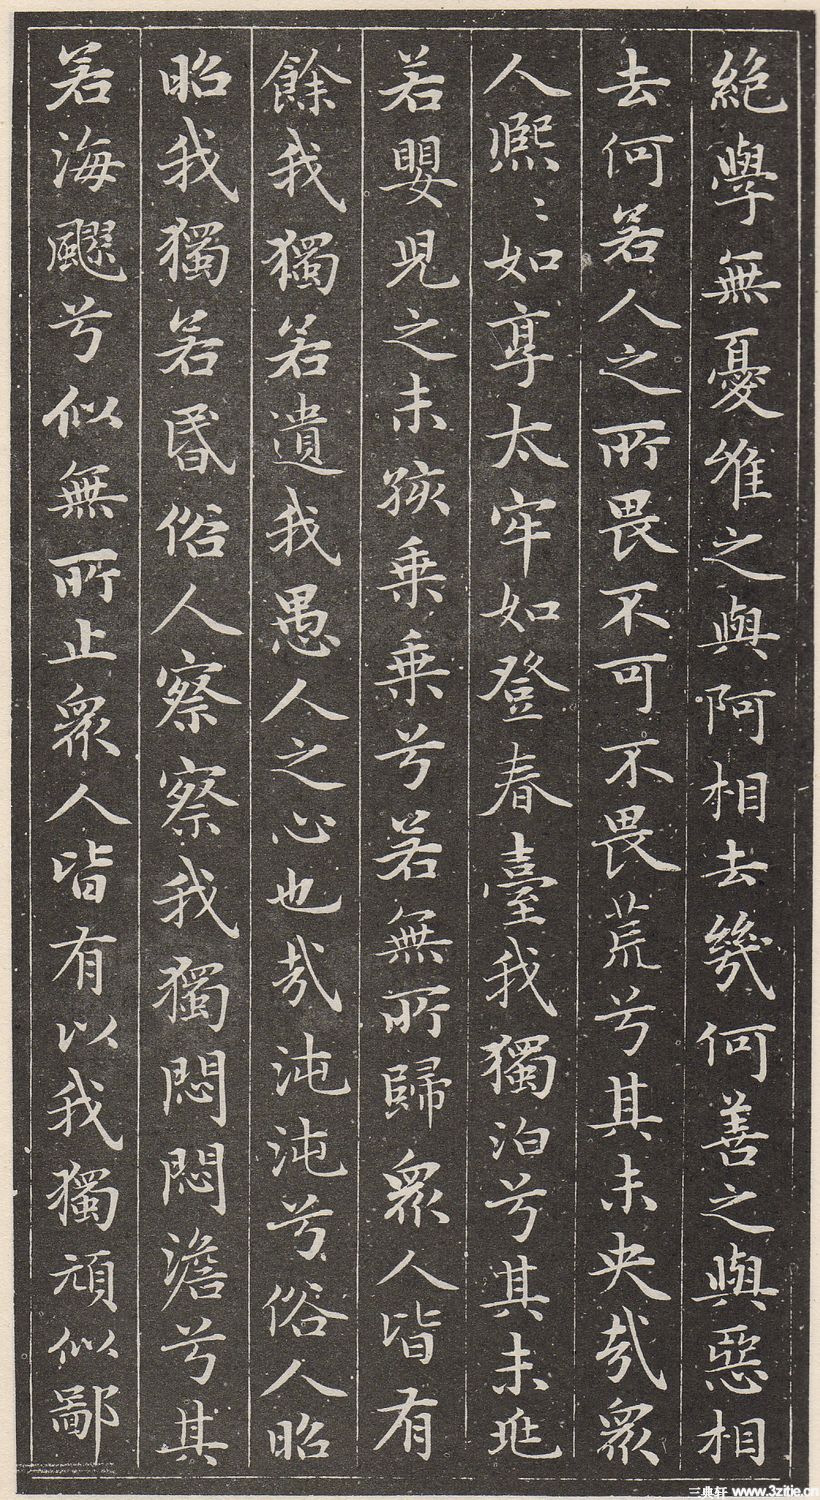 絶學無憂唯之與阿相去幾何善之與惡相
去何若人之所畏不可不畏荒兮其未央哉衆
人熈〻如享太牢如登春臺我獨泊兮其未兆
若嬰兒之未孩乗乗兮若無所歸衆人皆有
餘我獨若遺我愚人之心也哉沌沌兮俗人昭
昭我獨若昏俗人察察我獨悶悶澹兮其
若海飂兮似無所止衆人皆有以我獨頑似鄙
三典轩 www.3zitie.cn